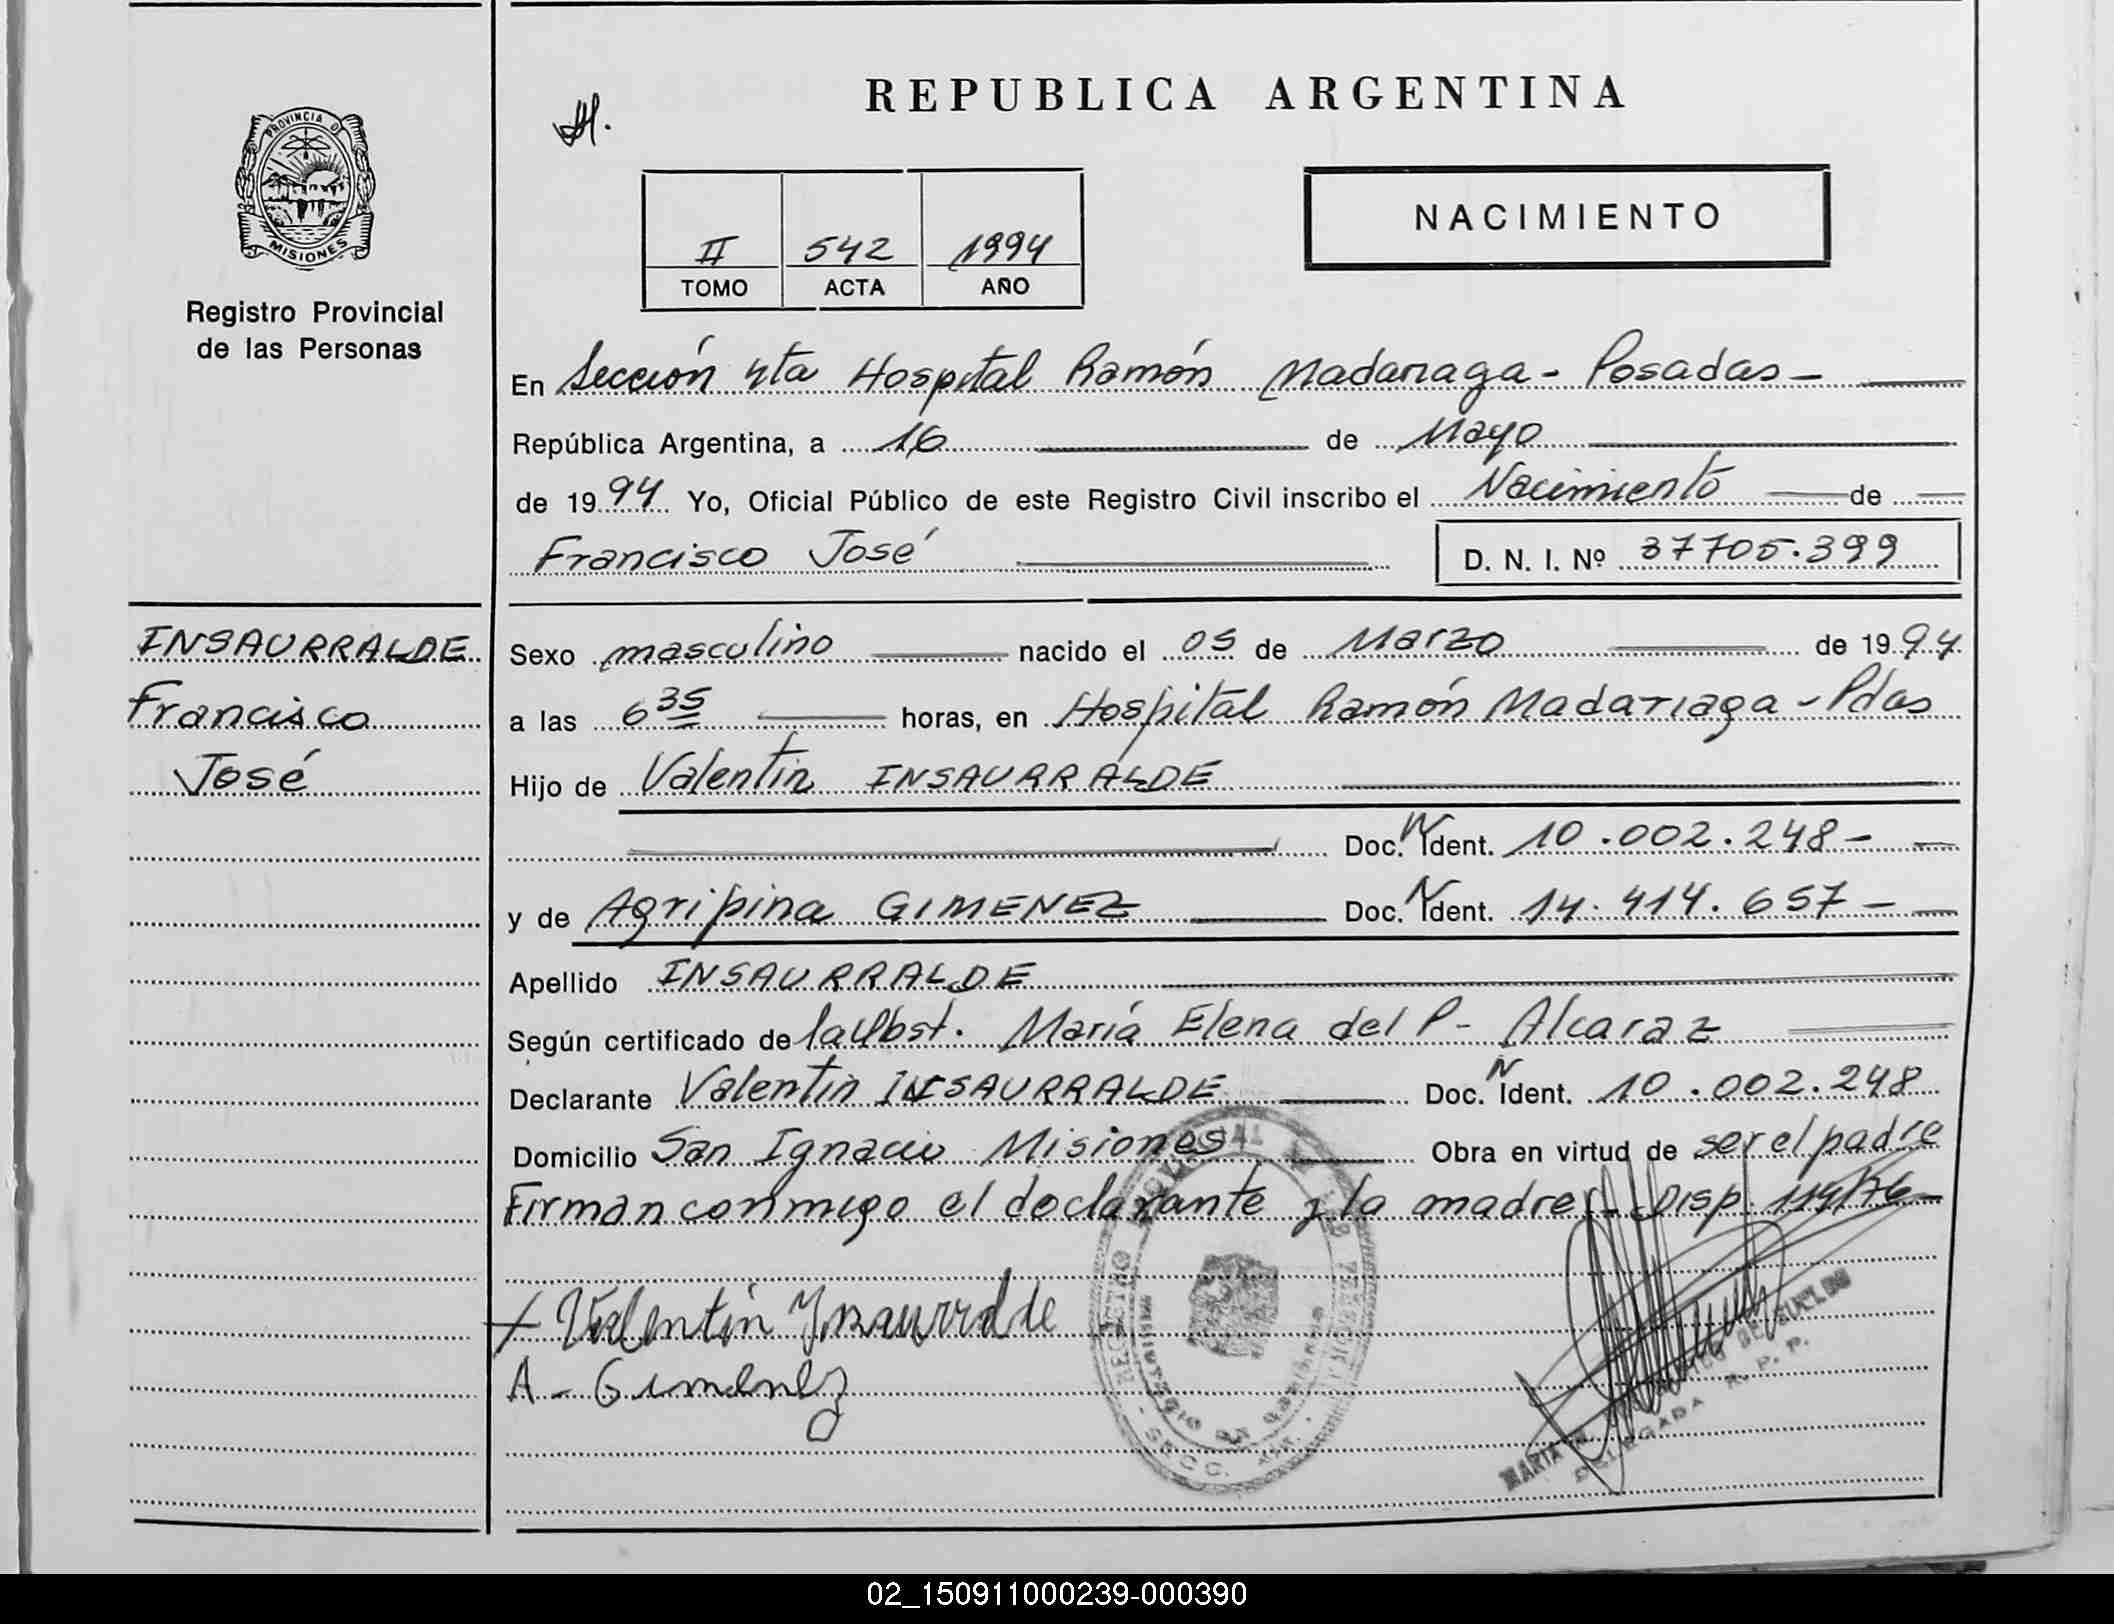 REPUBLICA ARGENTINA
PROVINCIA DE
MISIONES
Registro Provincial
de las Personas
H.
II 542 1994
TOMO ACTA AÑO
NACIMIENTO
En Sección 4ta Hospital Ramón Madariaga - Posadas -
República Argentina, a 16 de Mayo
de 1994 Yo, Oficial Público de este Registro Civil inscribo el Nacimiento de
Francisco José D. N. I. Nº 37705.399
INSAURRALDE
Francisco
José
Sexo masculino nacido el 05 de Marzo de 1994
a las 6 35 horas, en Hospital Ramón Madariaga - Pdas
Hijo de Valentín INSAURRALDE
Doc. N Ident. 10.002.248 -
y de Agripina GIMENEZ Doc. N Ident. 14.414.657 -
Apellido INSAURRALDE
Según certificado de la Obst. María Elena del P - Alcaraz
Declarante Valentín INSAURRALDE Doc. N Ident. 10.002.248
Domicilio San Ignacio Misiones Obra en virtud de ser el padre
Firman conmigo el declarante y la madre - Disp. 114/76 -
Valentín Ynsaurralde
A - Gimenez
REGISTRO PROVINCIAL DE LAS PERSONAS
SECC.
MARIA DE SUELDO
DELEGADA R. P. P.
02_150911000239-000390